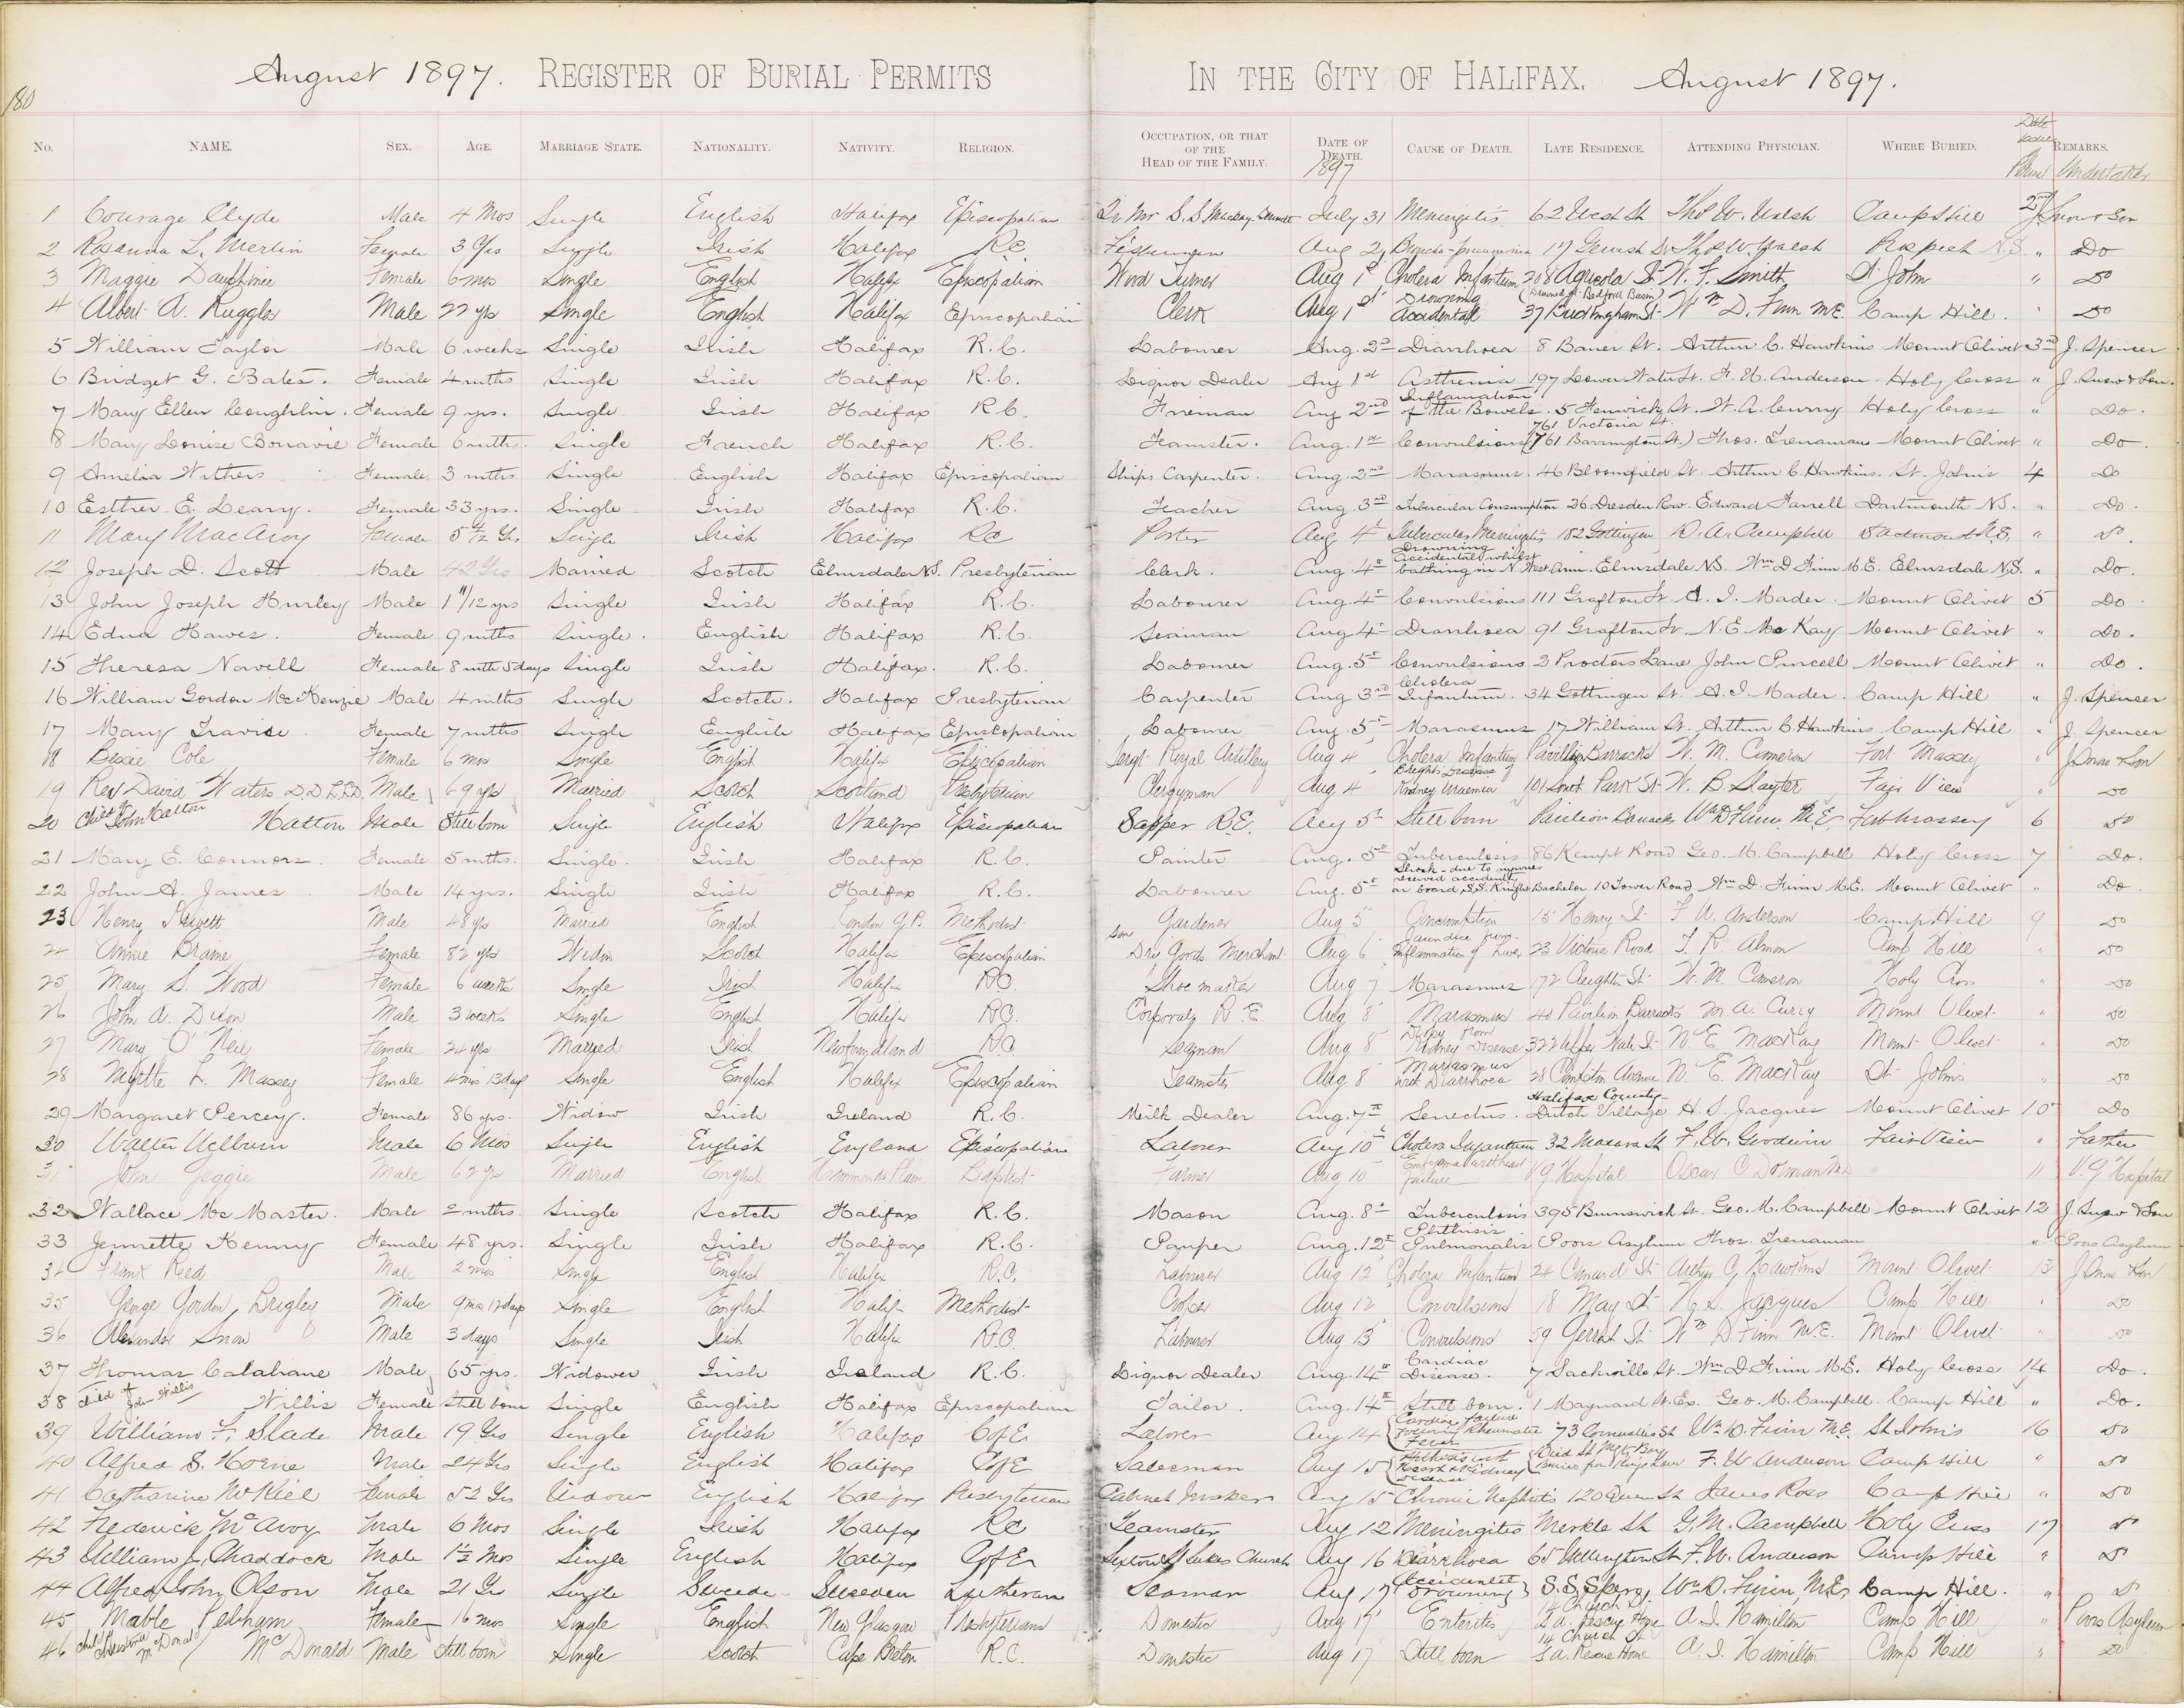 180
August 1897. REGISTER OF BURIAL PERMITS IN THE CITY OF HALIFAX. August 1897.
No. NAME. SEX. AGE. MARRIAGE STATE. NATIONALITY. NATIVITY. RELIGION. OCCUPATION, OR THAT OF THE HEAD OF THE FAMILY. DATE OF DEATH. 1897 CAUSE OF DEATH. LATE RESIDENCE. ATTENDING PHYSICIAN. WHERE BURIED. Date REMARKS. Undertaker
1 Courage Clyde Male 4 Mos Single English Halifax Episcopalian July 31 Meningitis 62 West St Thos W. Walsh Camp Hill 2nd J. Snow & Son
2 Rosanna L. Merlin Female 3 Yrs Single Irish Halifax R.C. Fisherman Aug 2 Broncho-pneumonia 17 Thos W. Walsh Prospect N.S. " Do
3 Maggie Dauphinee Female 6 mos Single English Halifax Episcopalian Wood Turner Aug 1st Cholera Infantum 208 Agricola St W. F. Smith St John " Do
4 Albert A. Ruggles Male 22 yrs Single English Halifax Episcopalian Clerk Aug 1st Drowning Accidental (Drowned at Bedford Basin) 37 Buckingham St Wm D. Finn M.E. Camp Hill. " Do
5 William Taylor Male 6 weeks Single Irish Halifax R.C. Labourer Aug. 2nd Diarrhoea 8 Bauer St. Arthur C. Hawkins Mount Olivet 3rd J. Spencer
6 Bridget G. Bates. Female 4 mths Single Irish Halifax R.C. Liquor Dealer Aug 1st Asthenia 197 Lower Water St. F. U. Anderson Holy Cross " J. Snow & Son.
7 Mary Ellen Coughlin. Female 9 yrs. Single Irish Halifax R.C. Fireman Aug 2nd Inflamation of the Bowels. 5 Fenwick St. W. A. Curry Holy Cross " Do.
8 Mary Louise Bonavie Female 6 mths. Single French Halifax R.C. Teamster. Aug. 1st Convulsions 761 Victoria St. (761 Barrington St.) Thos. Trenaman Mount Olivet " Do
9 Amelia Withers Female 3 mths Single English Halifax Episcopalian Ships Carpenter. Aug. 2nd Marasmus. 46 Bloomfield St. Arthur C. Hawkins. St. John's 4 Do
10 Esther E. Leary. Female 33 yrs. Single Irish Halifax R.C. Teacher Aug. 3rd Tubercular Consumption 26 Dresden Row. Edward Farrell Dartmouth N.S. " Do.
11 Mary MacAvoy Female Single Irish Halifax RC Porter Aug 4 Tubercular Meningitis 182 Gottingen D. A. Campbell Dartmouth N.S. " Do.
12 Joseph D. Scott Male 42 Yrs Married Scotch Elmsdale N.S. Presbyterian Clerk. Aug. 4th Drowning Accidental, whilst bathing in N. West Arm. Elmsdale N.S. Wm D Finn M.E. Elmsdale N.S. " Do.
13 John Joseph Hurley Male 1 11/12 yrs Single Irish Halifax R.C. Labourer Aug. 4th Convulsions 111 Grafton St A. I. Mader. Mount Olivet 5 Do
14 Edna Hawes. Female 9 mths Single. English Halifax R.C. Seaman Aug 4th Diarrhoea 91 Grafton St. N. E. McKay Mount Olivet " Do.
15 Theresa Novell Female 8 mth 5 days Single Irish Halifax. R.C. Labourer Aug. 5th Convulsions 2 Proctors Lane John Purcell Mount Olivet " Do.
16 William Gordon McKenzie Male 4 mths Single Scotch. Halifax Presbyterian Carpenter Aug. 3rd Cholera Infantum. 34 Gottingen St. A. I. Mader. Camp Hill " J. Spencer
17 Mary Travis Female 7 mths Single English Halifax Episcopalian Labourer Aug. 5th Marasmus 17 William St. Arthur C. Hawkins Camp Hill " J. Spencer
18 Bessie Cole Female 6 mos Single English Halifax Episcopalian Sergt. Royal Artillery Aug 4 Cholera Infantum Pavillion Barracks W. M. Cameron Fort Massey " J Snow & Son
19 Rev David Waters D.D L.L.D. Male 69 yrs Married Scotch Scotland Presbyterian Clergyman Aug 4 Brights Disease of Kidney Uraemia 101 South Park St W. B. Slayter Fair View " Do
20 Child of John Hatton Hatton Male Still born Single English Halifax Episcopalian Sapper R.E. Aug 5th Still born Pavilion Barracks Wm D Finn M.E. Fort Massey 6 Do
21 Mary E. Connors. Female 5 mths. Single. Irish Halifax R.C. Painter Aug. 5th Tuberculosis 86 Kempt Road Geo. M. Campbell Holy Cross 7 Do.
22 John A. James Male 14 yrs. Single Irish Halifax R.C. Labourer Aug. 5th Shock-due to injuries received accidently on board, S.S. Knight Bachelor 10 Tower Road Wm D. Finn M.E. Mount Olivet " Do
23 Henry Male 48 yrs Married English London G.B. Methodist Gardener Aug 5 Consumption 15 Henry St F U. Anderson Camp Hill 9 Do
24 Annie Braine Female 82 yrs Widow Scotch Halifax Episcopalian son Dry Goods Merchant Aug 6 Jaundice from Inflammation of Liver 23 Victoria Road T. R. Almon Camp Hill " Do
25 Mary S. Wood Female 6 weeks Single Irish Halifax RC. Shoe maker Aug 7 Marasmus 72 Creighton St W. M. Cameron Holy Cross " Do
26 John A. Dixon Male 3 weeks Single English Halifax RC. Corporal R.E. Aug 8 Marasmus 40 Pavilion Barracks W. A. Curry Mount Olivet " Do
27 Mary O'Neil Female 24 yrs Married Irish Newfoundland RC Seaman Aug 8 Dropsy from Kidney Disease 322 Upper Water St N. E MacKay Mount Olivet " Do
28 L. Massey Female 4 mos 13 days Single English Halifax Episcopalian Teamster Aug 8 Marasmus with Diarrhoea 28 Compton Avenue N. E. MacKay St Johns " Do
29 Margaret Percey. Female 86 yrs. Widow Irish Ireland R.C. Milk Dealer Aug. 7th Senectus. Halifax County Dutch Village H. S. Jacques Mount Olivet 10 Do
30 Walter Welburn Male 6 Mos Single English England Episcopalian Laborer Aug 10th Cholera Infantum 32 Macara St F. W. Goodwin Fair View " Father
31 John Yeggie Male 62 yrs Married English Hammonds Plain Baptist Farmer Aug 10 Empyema with heart failure V.G Hospital Oscar C Dorman M.D 11 V.G Hospital
32 Wallace McMaster. Male 2 mths. Single Scotch Halifax R.C. Mason Aug. 8th Tuberculosis 395 Brunswick St. Geo. M. Campbell Mount Olivet 12 J. Snow & Son
33 Jennette Kenny Female 48 yrs. Single Irish Halifax R.C. Pauper Aug. 12th Phthisis Pulmonalis Poors Asylum Thos. Trenaman " Poors Asylum
34 Frank Reed Male 2 mos Single English Halifax R.C. Labourer Aug 12 Cholera Infantum 24 Cunard St Arthur C. Hawkins Mount Olivet 13 J Snow & Son
35 George Gordon Brigley Male 9 mos 12 days Single English Halifax Methodist Aug 12 Convulsions 18 May St H. S. Jacques Camp Hill " Do
36 Alexander Snow Male 3 days Single Irish Halifax R.C. Labourer Aug 13 Convulsions 59 Gerrish St Wm D. Finn M.E. Mount Olivet " Do
37 Thomas Calahane Male 65 yrs. Widower Irish Ireland R.C. Liquor Dealer Aug. 14th Cardiac Disease. 7 Sackville St. Wm D Finn M.E. Holy Cross 14 Do.
38 Child of John Willis Willis Female Still born Single English Halifax Episcopalian Tailor. Aug. 14th Still born. 1 Maynard St. Ex. Geo. M. Campbell. Camp Hill " Do.
39 William F. Slade Male 19 Yrs Single English Halifax C of E Laborer Aug 14 Cardiac failure following Rheumatic Fever 73 Cornwallis St Wm D. Finn M.E. St John's 16 Do
40 Alfred S. Horne Male 24 Yrs Single English Halifax C of E Salesman Aug 15 Phthisis with Heart & Kidney Disease Died St Mgts Bay F. U Anderson Camp Hill " Do
41 Catharine McKiel Female 52 Yrs Widow English Halifax Presbyterian Cabinet Maker Aug 15 Chronic Nephritis 120 Queen St James Ross Camp Hill " Do
42 Frederick McAvoy Male 6 Mos Single Irish Halifax RC Teamster Aug 12 Meningitis Merkle St G. M. Campbell Holy Cross 17 Do
43 William J. Chaddock Male 1½ Mos Single English Halifax C of E Sexton St Lukes Church Aug 16 Diarrhoea 65 Wellington St F. U. Anderson Camp Hill " Do
44 Alfred John Olson Male 21 Yrs Single Swede Sweden Lutheran Seaman Aug 17 Accidental Drowning S.S. Wm D. Finn M.E. Camp Hill. " Do
45 Mable Pelham Female 16 mos Single English New Glasgow Presbyterian Domestic Aug 17 Enteritis 14 Church St S.A. Rescue Home A. I. Hamilton Camp Hill " Poors Asylum
46 Child of Christina McDonald McDonald Male Still born Single Scotch Cape Breton R.C. Domestic Aug 17 Still born 14 Church St S.A. Rescue Home A. I. Hamilton Camp Hill " Do